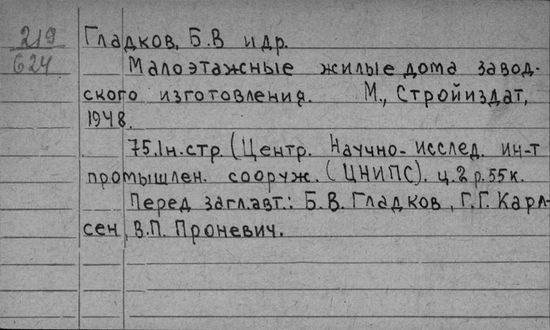 219
624
Гладков, Б.В и др.
Малоэтажные жилые дома завод-
ского изготовления. М., Стройиздат,
1948.
75.1н.стр. (Центр. Научно-исслед. ин-т
промышлен. сооруж. (ЦНИПС). ц.2 р.55к.
Перед загл.авт.: Б.В. Гладков, Г.Г. Карл-
сен, В.П. Проневич.